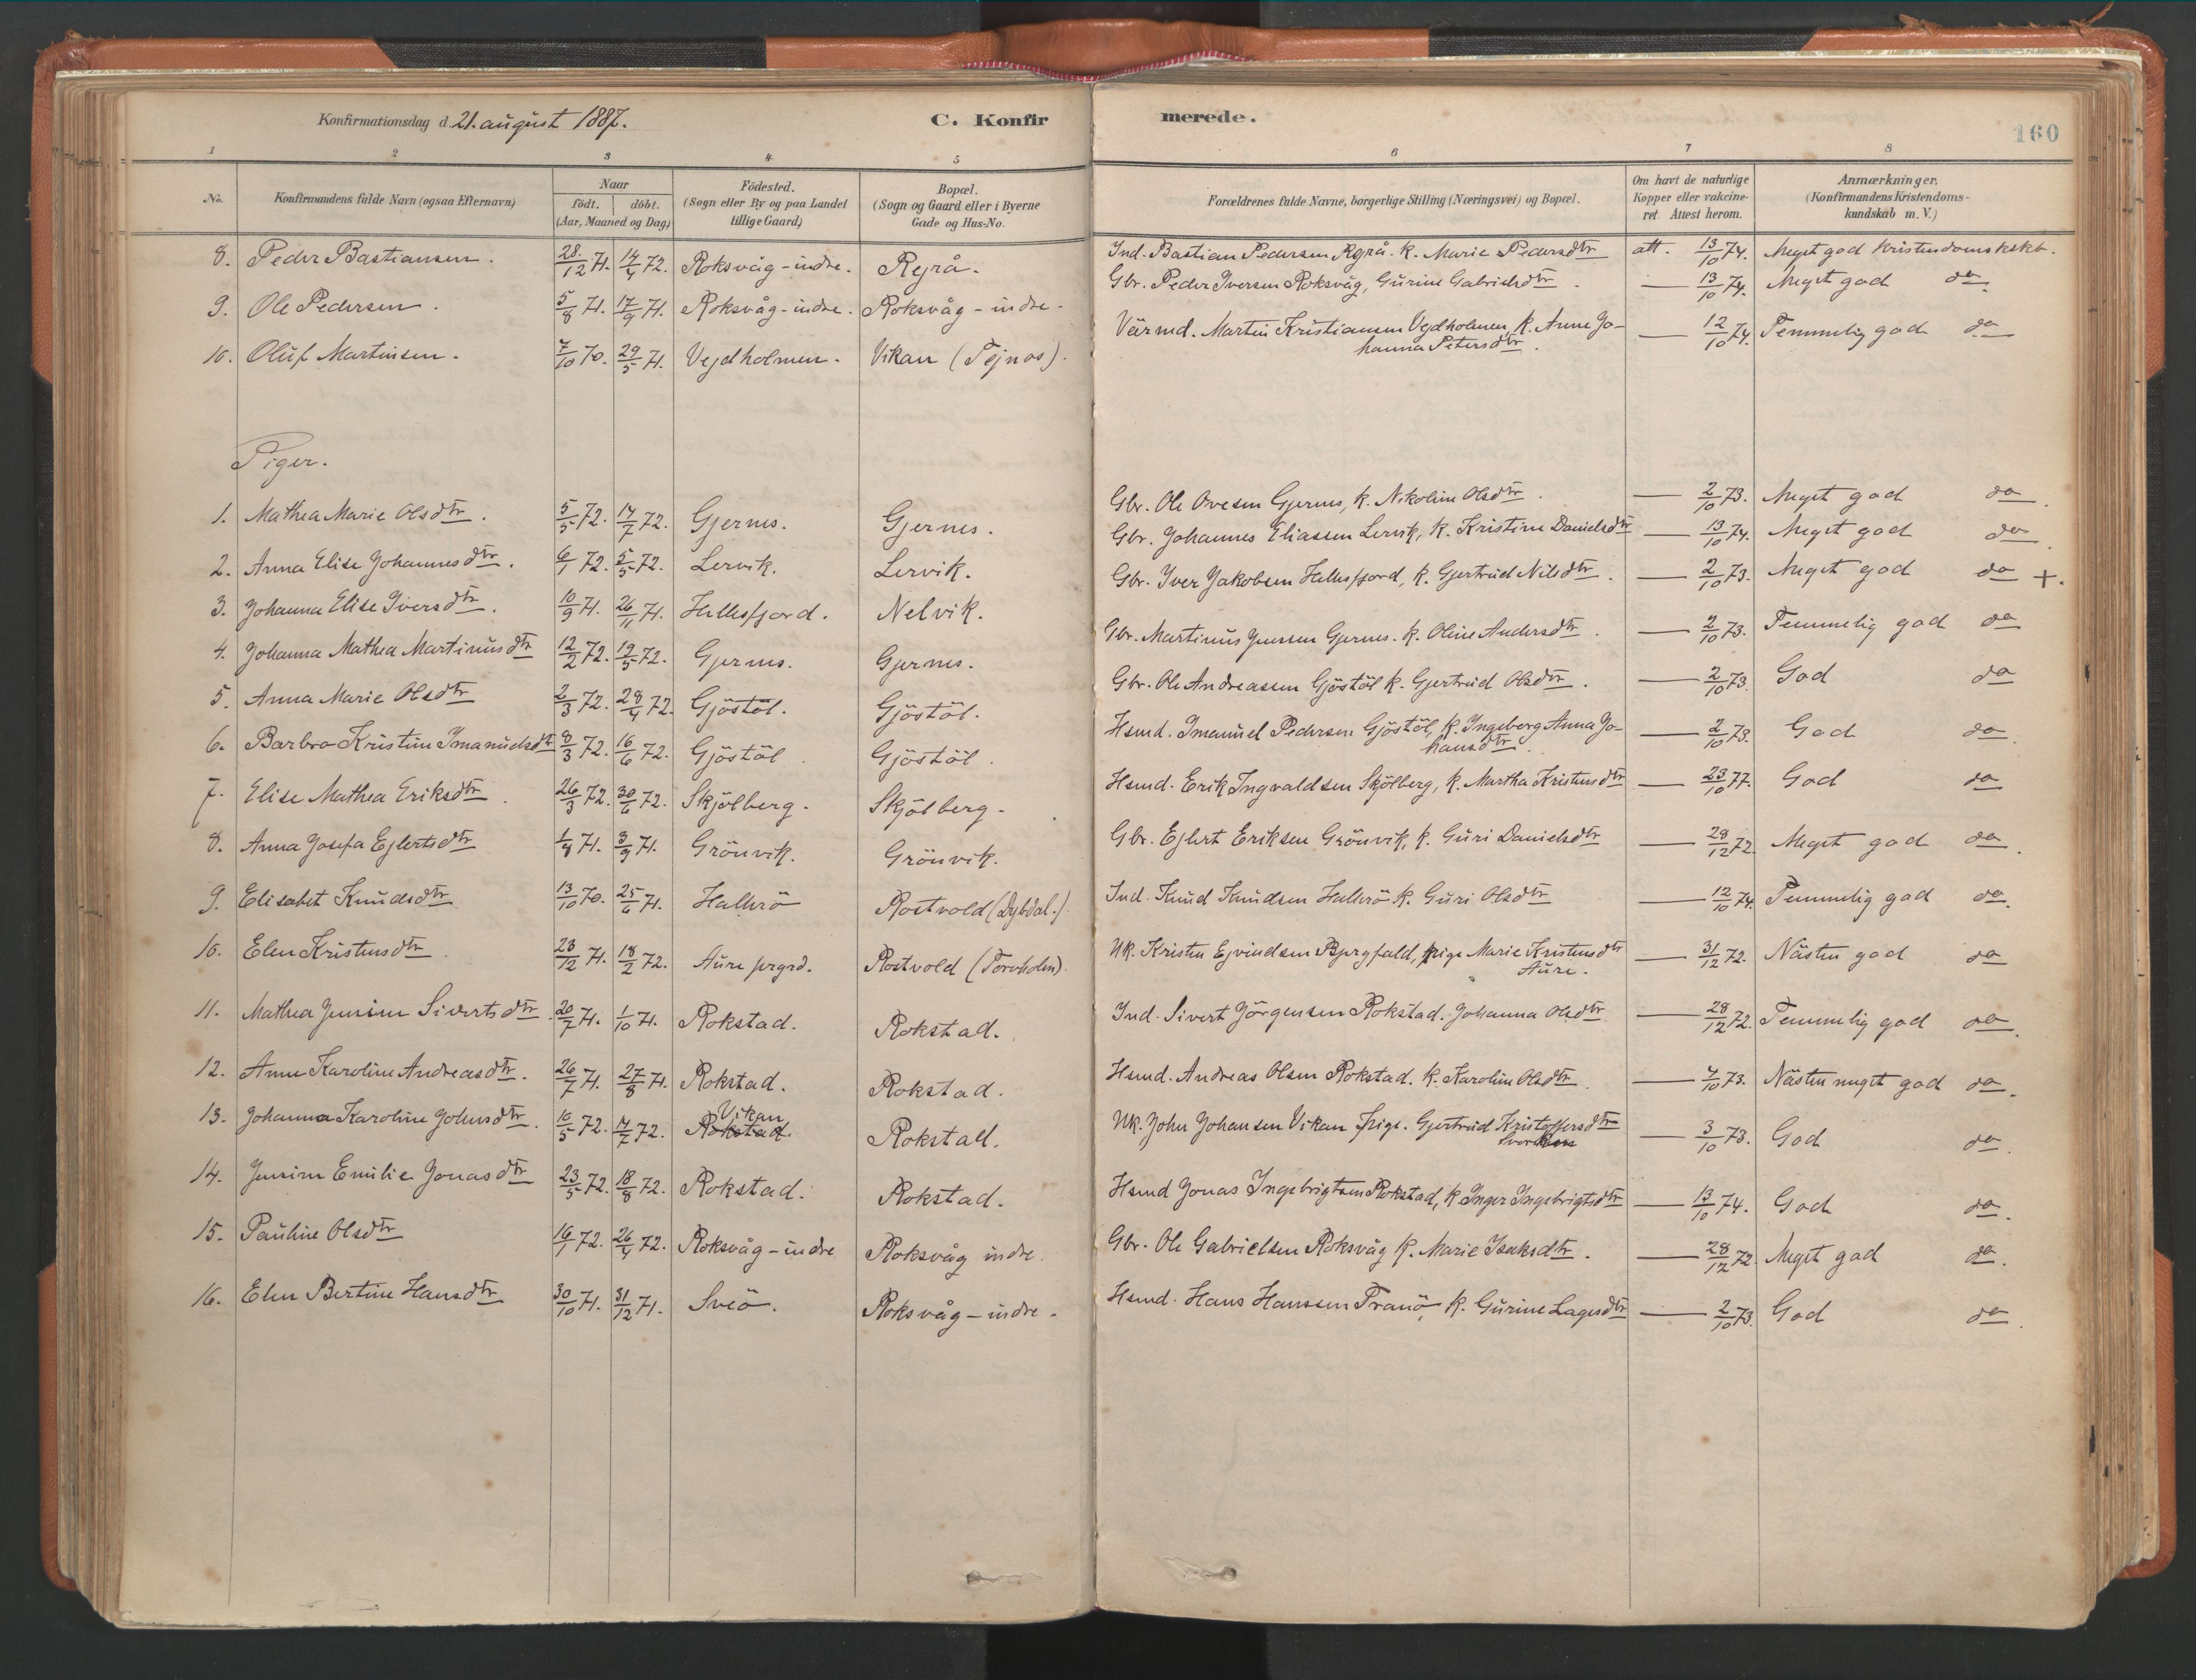 Konfirmationsdag d. 21. august 1887.
C. Konfirmerede.
160
1 2 3 4 5 6 7 8
No. Konfirmandens fulde Navn (ogsaa Efternavn) Naar født. døbt. (Aar, Maaned og Dag) Födested. (Sogn eller By og paa Landet tillige Gaard) Bopæl. (Sogn og Gaard eller i Byerne Gade og Hus-No. Forældrenes fulde Navne, borgerlige Stilling (Næringsvei) og Bopæl. Om havt de naturlige Kopper eller vakcineret. Attest herom. Anmærkninger. (Konfirmandens Kristendomskundskab m. V.)
8. Peder Bastiansen. 28/12 71. 14/4 72. Roksvåg-indre. Rejrå. Ind. Bastian Pedersen Rejrå. k. Marie Pedersdtr att. 13/10 74. Meget god Kristendomskskb.
9. Ole Pedersen. 5/8 71. 17/9 71. Roksvåg-indre. Roksvåg-indre. Gbr. Peder Iversen Roksvåg, Gurine Gabrielsdtr. — 13/10 74. Meget god do
10. Oluf Martinsen. 7/10 70. 29/5 71. Vejdholmen. Vikan (Tejnos). Värmd. Martin Kristiansen Vejdholmen, k. Anne Johanna Petersdtr. — 12/10 74. Temmelig god do
Piger.
1. Mathea Marie Olsdtr. 5/5 72. 14/7 72. Gjernes. Gjernes. Gbr. Ole Ovesen Gjernes, k. Nikoline Olsdtr. — 2/10 73. Meget god do
2. Anna Elise Johannesdtr. 6/1 72. 5/5 72. Lervik. Lervik. Gbr. Johannes Eliassen Lervik, k. Kristine Danielsdtr — 13/10 74. Meget god do
3. Johanna Elise Iversdtr. 10/9 71. 26/11 71. Hellesfjord. Nelvik. Gbr. Iver Jakobsen Hellesfjord, k. Gjertrud Nilsdtr. — 2/10 73. Meget god do +.
4. Johanna Mathea Martinusdtr 12/2 72. 19/5 72. Gjernes. Gjernes. Gbr. Martinus Jenssen Gjernes. k. Oline Andersdtr. — 2/10 73. Temmelig god do
5. Anna Marie Olsdtr 2/3 72. 28/4 72. Gjöstöl. Gjöstöl. Gbr. Ole Andreassen Gjöstöl k. Gjertrud Olsdtr. — 2/10 73. God do
6. Barbro Kristine Imanuelsdtr 8/3 72. 16/6 72. Gjöstöl. Gjöstöl. Hsmd. Imanuel Pedersen Gjöstöl, k. Ingeborg Anna Johansdtr. — 2/10 73. God do
7. Elise Mathea Eriksdtr. 26/3 72. 30/6 72. Skjölberg. Skjölberg. Hsmd. Erik Ingvaldsen Skjölberg, k. Martha Kristensdtr — 23/10 77. God do
8. Anna Josefa Ejlertsdtr 1/8 71. 3/9 71. Grönvik. Grönvik. Gbr. Ejlert Eriksen Grönvik, k. Guri Danielsdtr — 28/12 72. Meget god do
9. Elisabet Knudsdtr 13/10 70. 25/6 71. Hallerö Rostvold (Dybdal.). Ind. Knud Knudsen Hallerö k. Guri Olsdtr — 12/10 74. Temmelig god do.
10. Elen Kristensdtr. 23/12 71. 18/2 72. Aure prgrd. Rostvold (Torvholm). Uk. Kristen Ejvindsen Bjergfald, pige Marie Kristensdtr Aure. — 31/12 72. Nästen god do
11. Mathea Jensine Sivertsdtr. 20/7 71. 1/10 71. Rokstad. Rokstad. Ind. Sivert Jörgensen Rokstad. Johanna Olsdtr — 28/12 72. Temmelig god do.
12. Anne Karoline Andreasdtr. 26/7 71. 27/8 71. Rokstad. Rokstad. Hsmd. Andreas Olsen Rokstad. k. Karoline Olsdtr. — 4/10 73. Nästen meget god do.
13. Johanna Karoline Johnsdtr. 10/5 72. 14/7 72. Vikan Rokstad. Rokstad. Uk. John Johansen Vikan pige. Gjertrud Kristoffersdtr — 3/10 73. God do.
14. Jensine Emilie Jonasdtr 23/5 72. 18/8 72. Rokstad. Rokstad. Hsmd Jonas Ingebrigtsen Rokstad, k Inger Ingebrigtsdtr — 13/10 74. God do.
15. Pauline Olsdtr 16/1 72. 26/4 72. Roksvåg-indre Roksvåg indre. Gbr. Ole Gabrielsen Roksvåg k. Marie Isaksdtr. — 28/12 72. Meget god do.
16. Elen Bertine Hansdtr 30/10 71. 31/12 71. Sveö. Roksvåg-indre. Hsmd. Hans Hanssen Tranö, k. Gurine Lagesdtr — 2/10 73. God do.